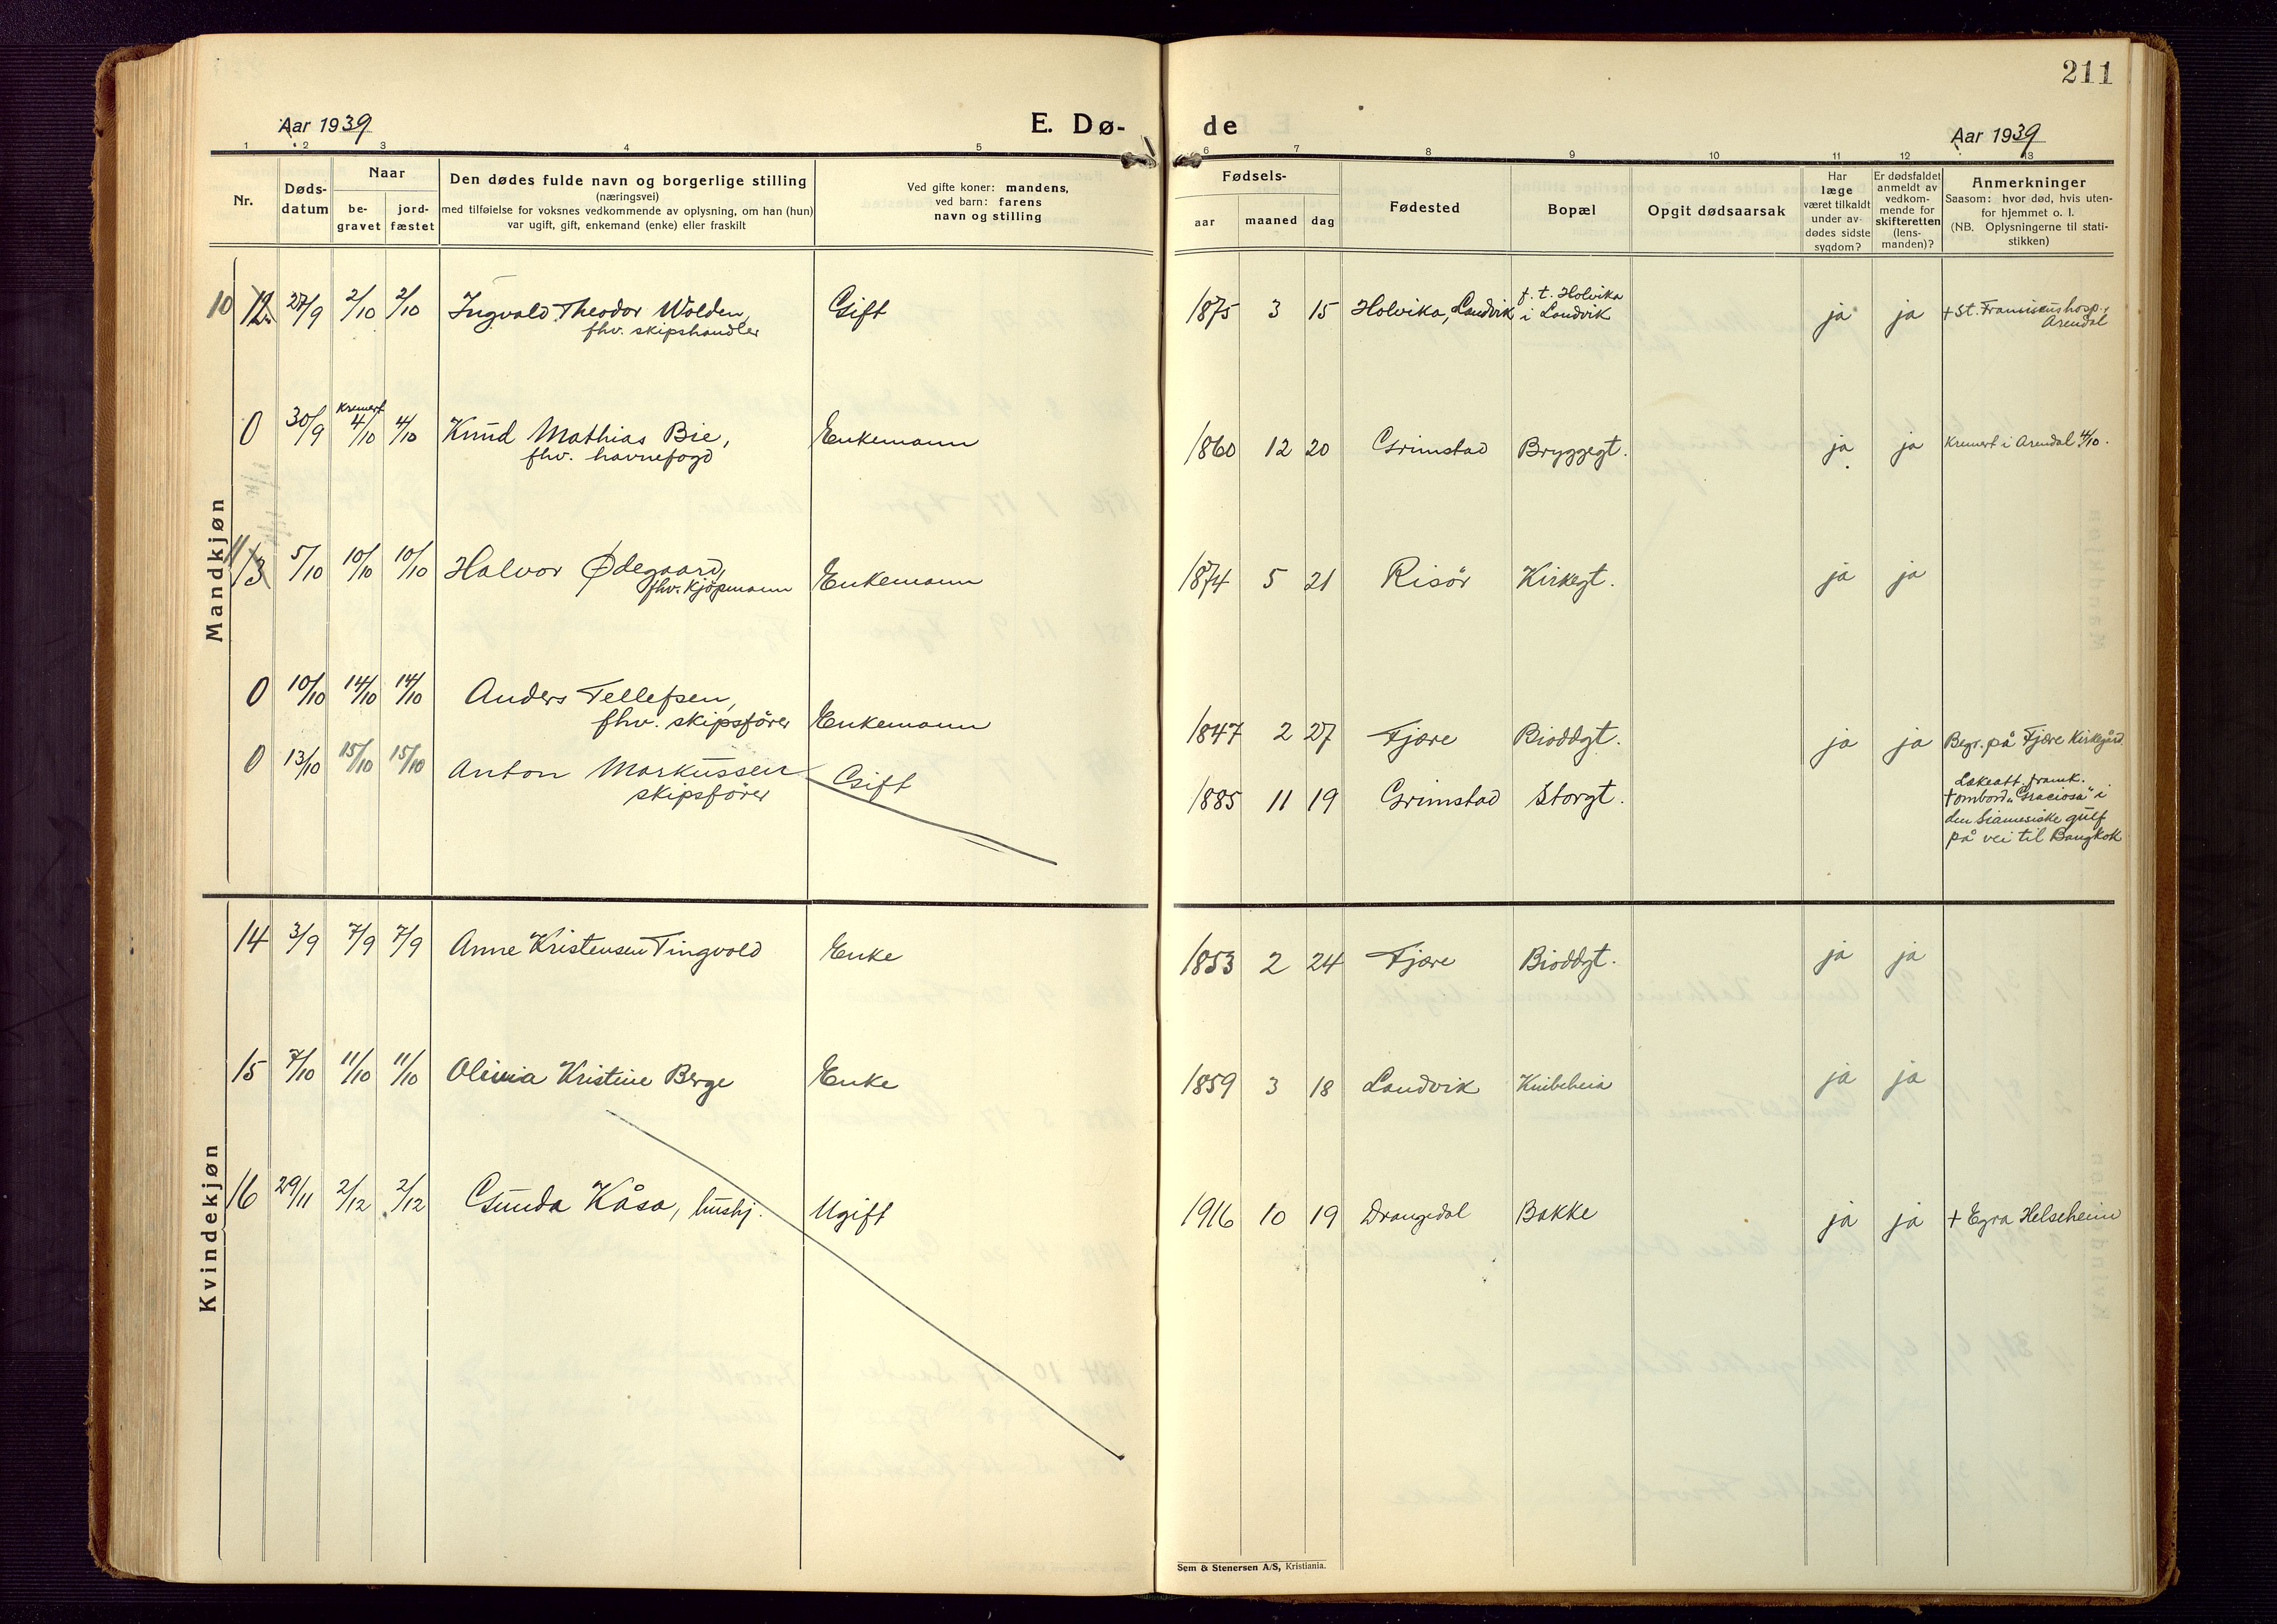 211
Aar 1939
E. Dø-
de
Aar 1939
1 2 3 4 5 6 7 8 9 10 11 12 13
Nr.
Døds-
datum
Naar
be-
gravet
jord-
fæstet
Den dødes fulde navn og borgerlige stilling
(næringsvei)
med tilføielse for voksnes vedkommende av oplysning, om han (hun)
var ugift, gift, enkemand (enke) eller fraskilt
Ved gifte koner: mandens,
ved barn: farens
navn og stilling
Fødsels-
aar
maaned
dag
Fødested
Bopæl
Opgit dødsaarsak
Har
læge
været tilkaldt
under av-
dødes sidste
sygdom?
Er dødsfaldet
anmeldt av
vedkom-
mende for
skifteretten
(lens-
manden)?
Anmerkninger
Saasom: hvor død, hvis uten-
for hjemmet o. l.
(NB. Oplysningerne til stati-
stikken)
Mandkjøn
10 12 27/9 2/10 2/10 Ingvald Theodor Wolden, Gift 1875 3 15 Holvika, Landvik f. t. Holvika ja ja + St. Franciscushosp.,
fhv. skipshandler i Landvik Arendal
Kremert
0 30/9 4/10 4/10 Knud Mathias Bie, Enkemann 1860 12 20 Grimstad Bryggegt. ja ja Kremert i Arendal 4/10.
fhv. havnefogd
11 13 5/10 10/10 10/10 Halvor Ødegaard, Enkemann 1874 5 21 Risör Kirkegt. ja ja
fhv. kjöpmann
0 10/10 14/10 14/10 Anders Tellefsen, Enkemann 1847 2 27 Fjære Bioddgt. ja ja Begr. på Fjære Kirkegård
fhv. skipsförer
0 13/10 15/10 15/10 Anton Markussen Gift 1885 11 19 Grimstad Storgt. Lækeatt. framk.
skipsförer + ombord "Graciosa" i
den Siamesiske gulf
på vei til Bangkok
Kvindekjøn
14 3/9 7/9 7/9 Anne Kristensen Tingvold Enke 1853 2 24 Fjære Bioddgt. ja ja
15 7/10 11/10 11/10 Olivia Kristine Berge Enke 1859 3 18 Landvik Knibeheia ja ja
16 29/11 2/12 2/12 Gunda Kåsa, hushj. Ugift 1916 10 19 Drangedal Bakke ja ja + Egra Helseheim
Sem & Stenersen A/S, Kristiania.